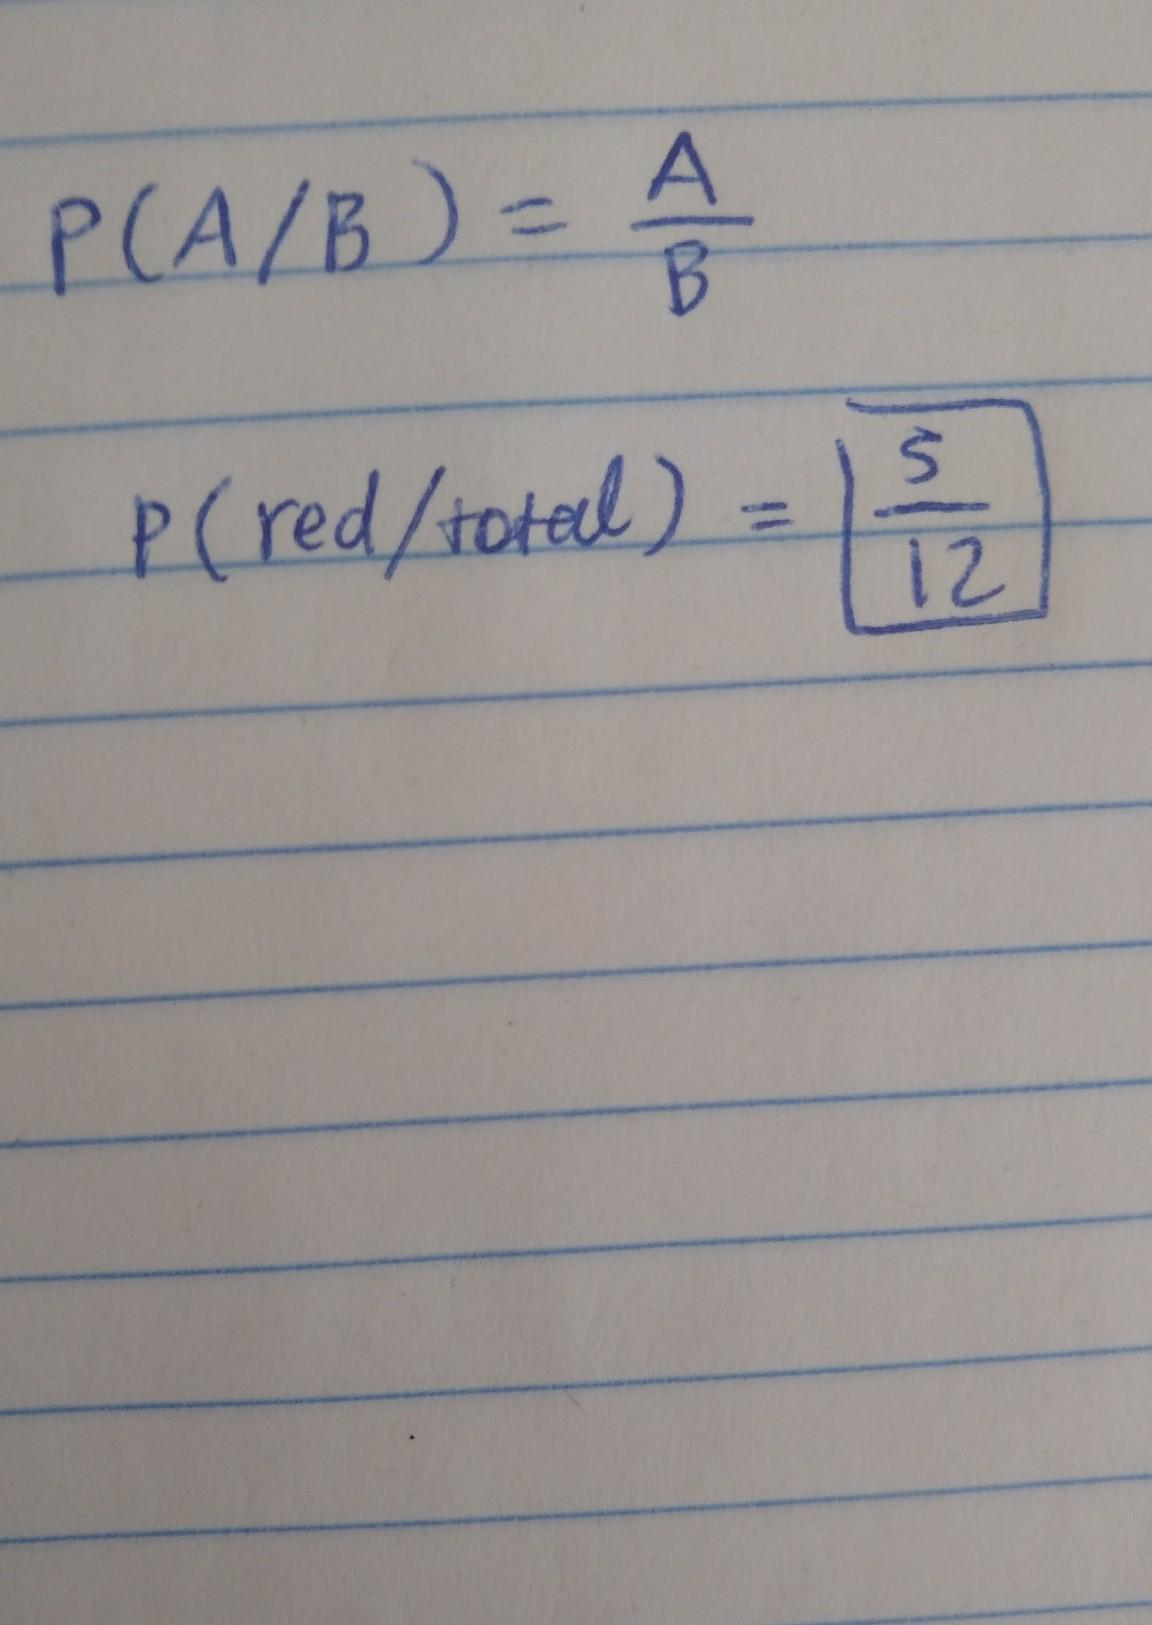 P(A/B) = A/B
P(red/total) = 5/12